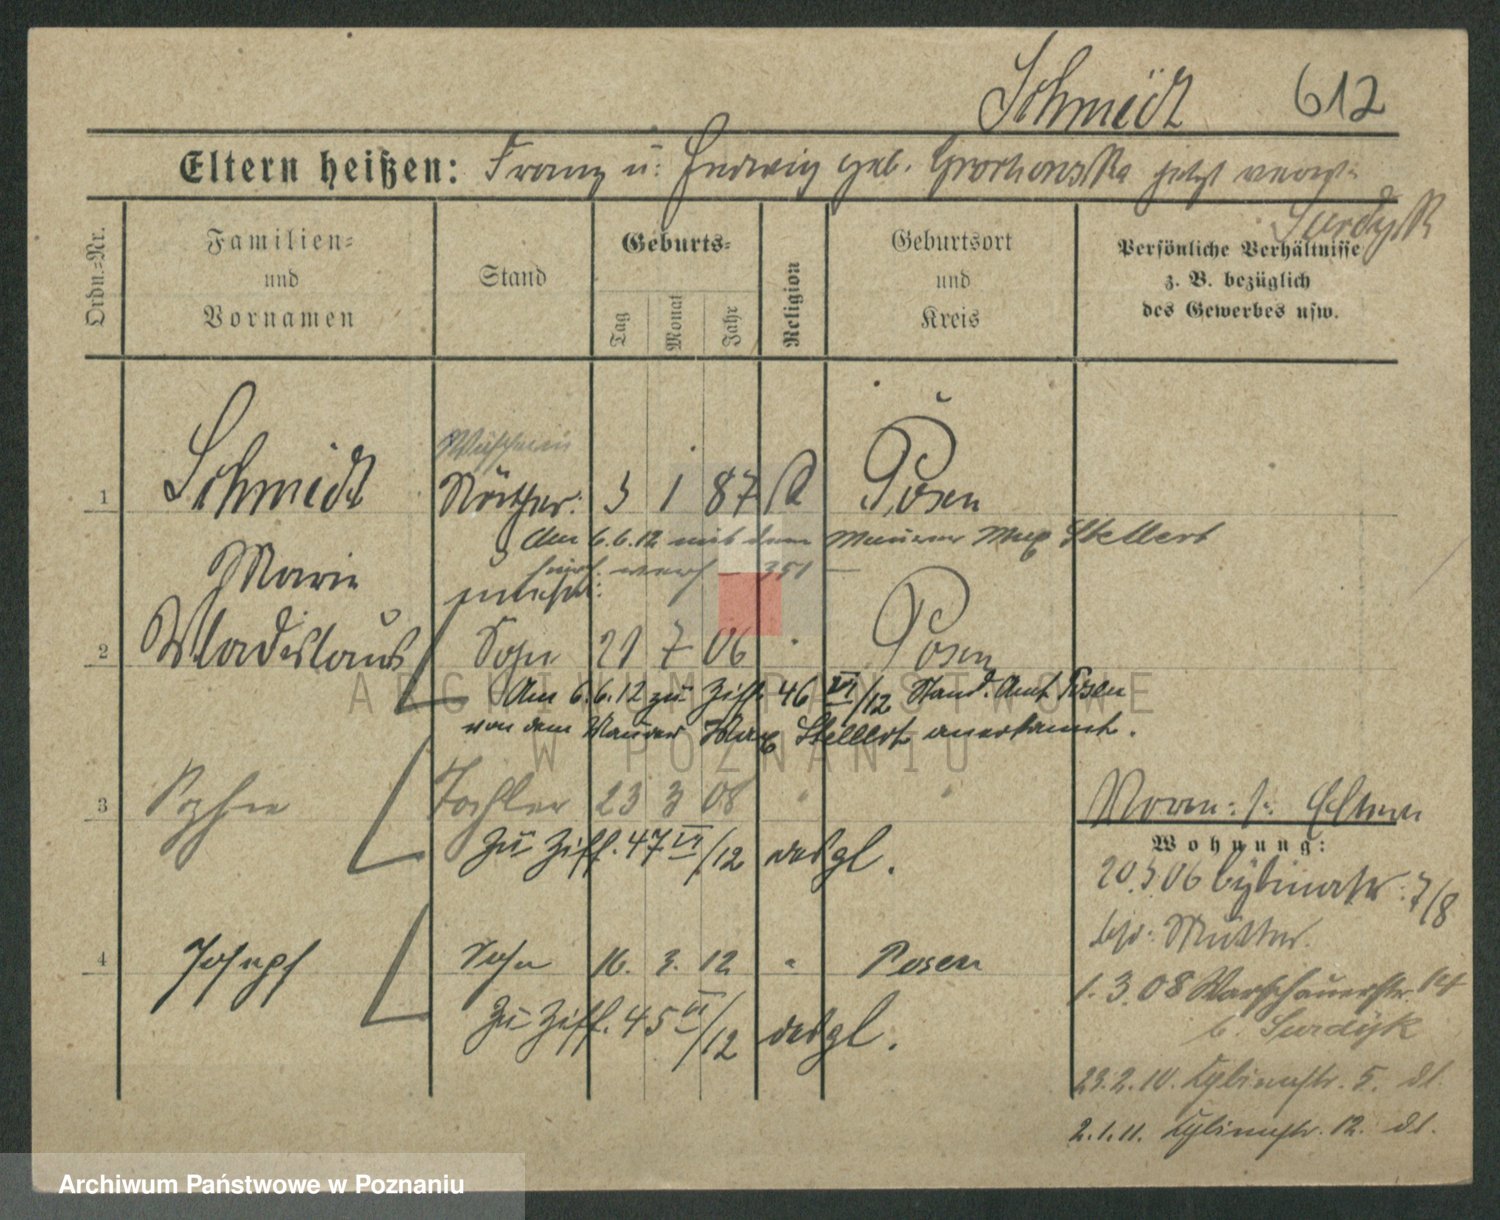 Schmidt 612
Eltern heißen: Franz u. Hedwig geb. Grochowska jetzt
Surdyk
Ordn.=Nr.
Familien=
und
Vornamen
Stand
Geburts=
Tag
Monat
Jahr
Religion
Geburtsort
und
Kreis
Persönliche Verhältnisse
z. B. bezüglich
des Gewerbes usw.
1 Schmidt 3 1 87 K Posen
Am 6.6.12 mit dem Maurer Max Stellert
Marie 351
2 Wladislaus Sohn 21 7 06 " Posen
Am 6.6.12 zu Ziff. 46 VI/12 Stand. Amt Posen
von dem Maurer Max Stellert anerkannt.
3 Sophie Tochter 23 3 08 " "
Zu Ziff. 47 VI/12 desgl.
Vorm: s. Eltern
Wohnung:
20.3.06 7/8
bei Mutter.
4 Joseph Sohn 16. 3. 12 " Posen
Zu Ziff. 45 VI/12 desgl.
1.3.08 Warschauerstr. 14
b. Surdyk
23.2.10. 5. dt.
2.1.11. 12. dt.
ARCHIWUM PAŃSTWOWE
W POZNANIU
Archiwum Państwowe w Poznaniu